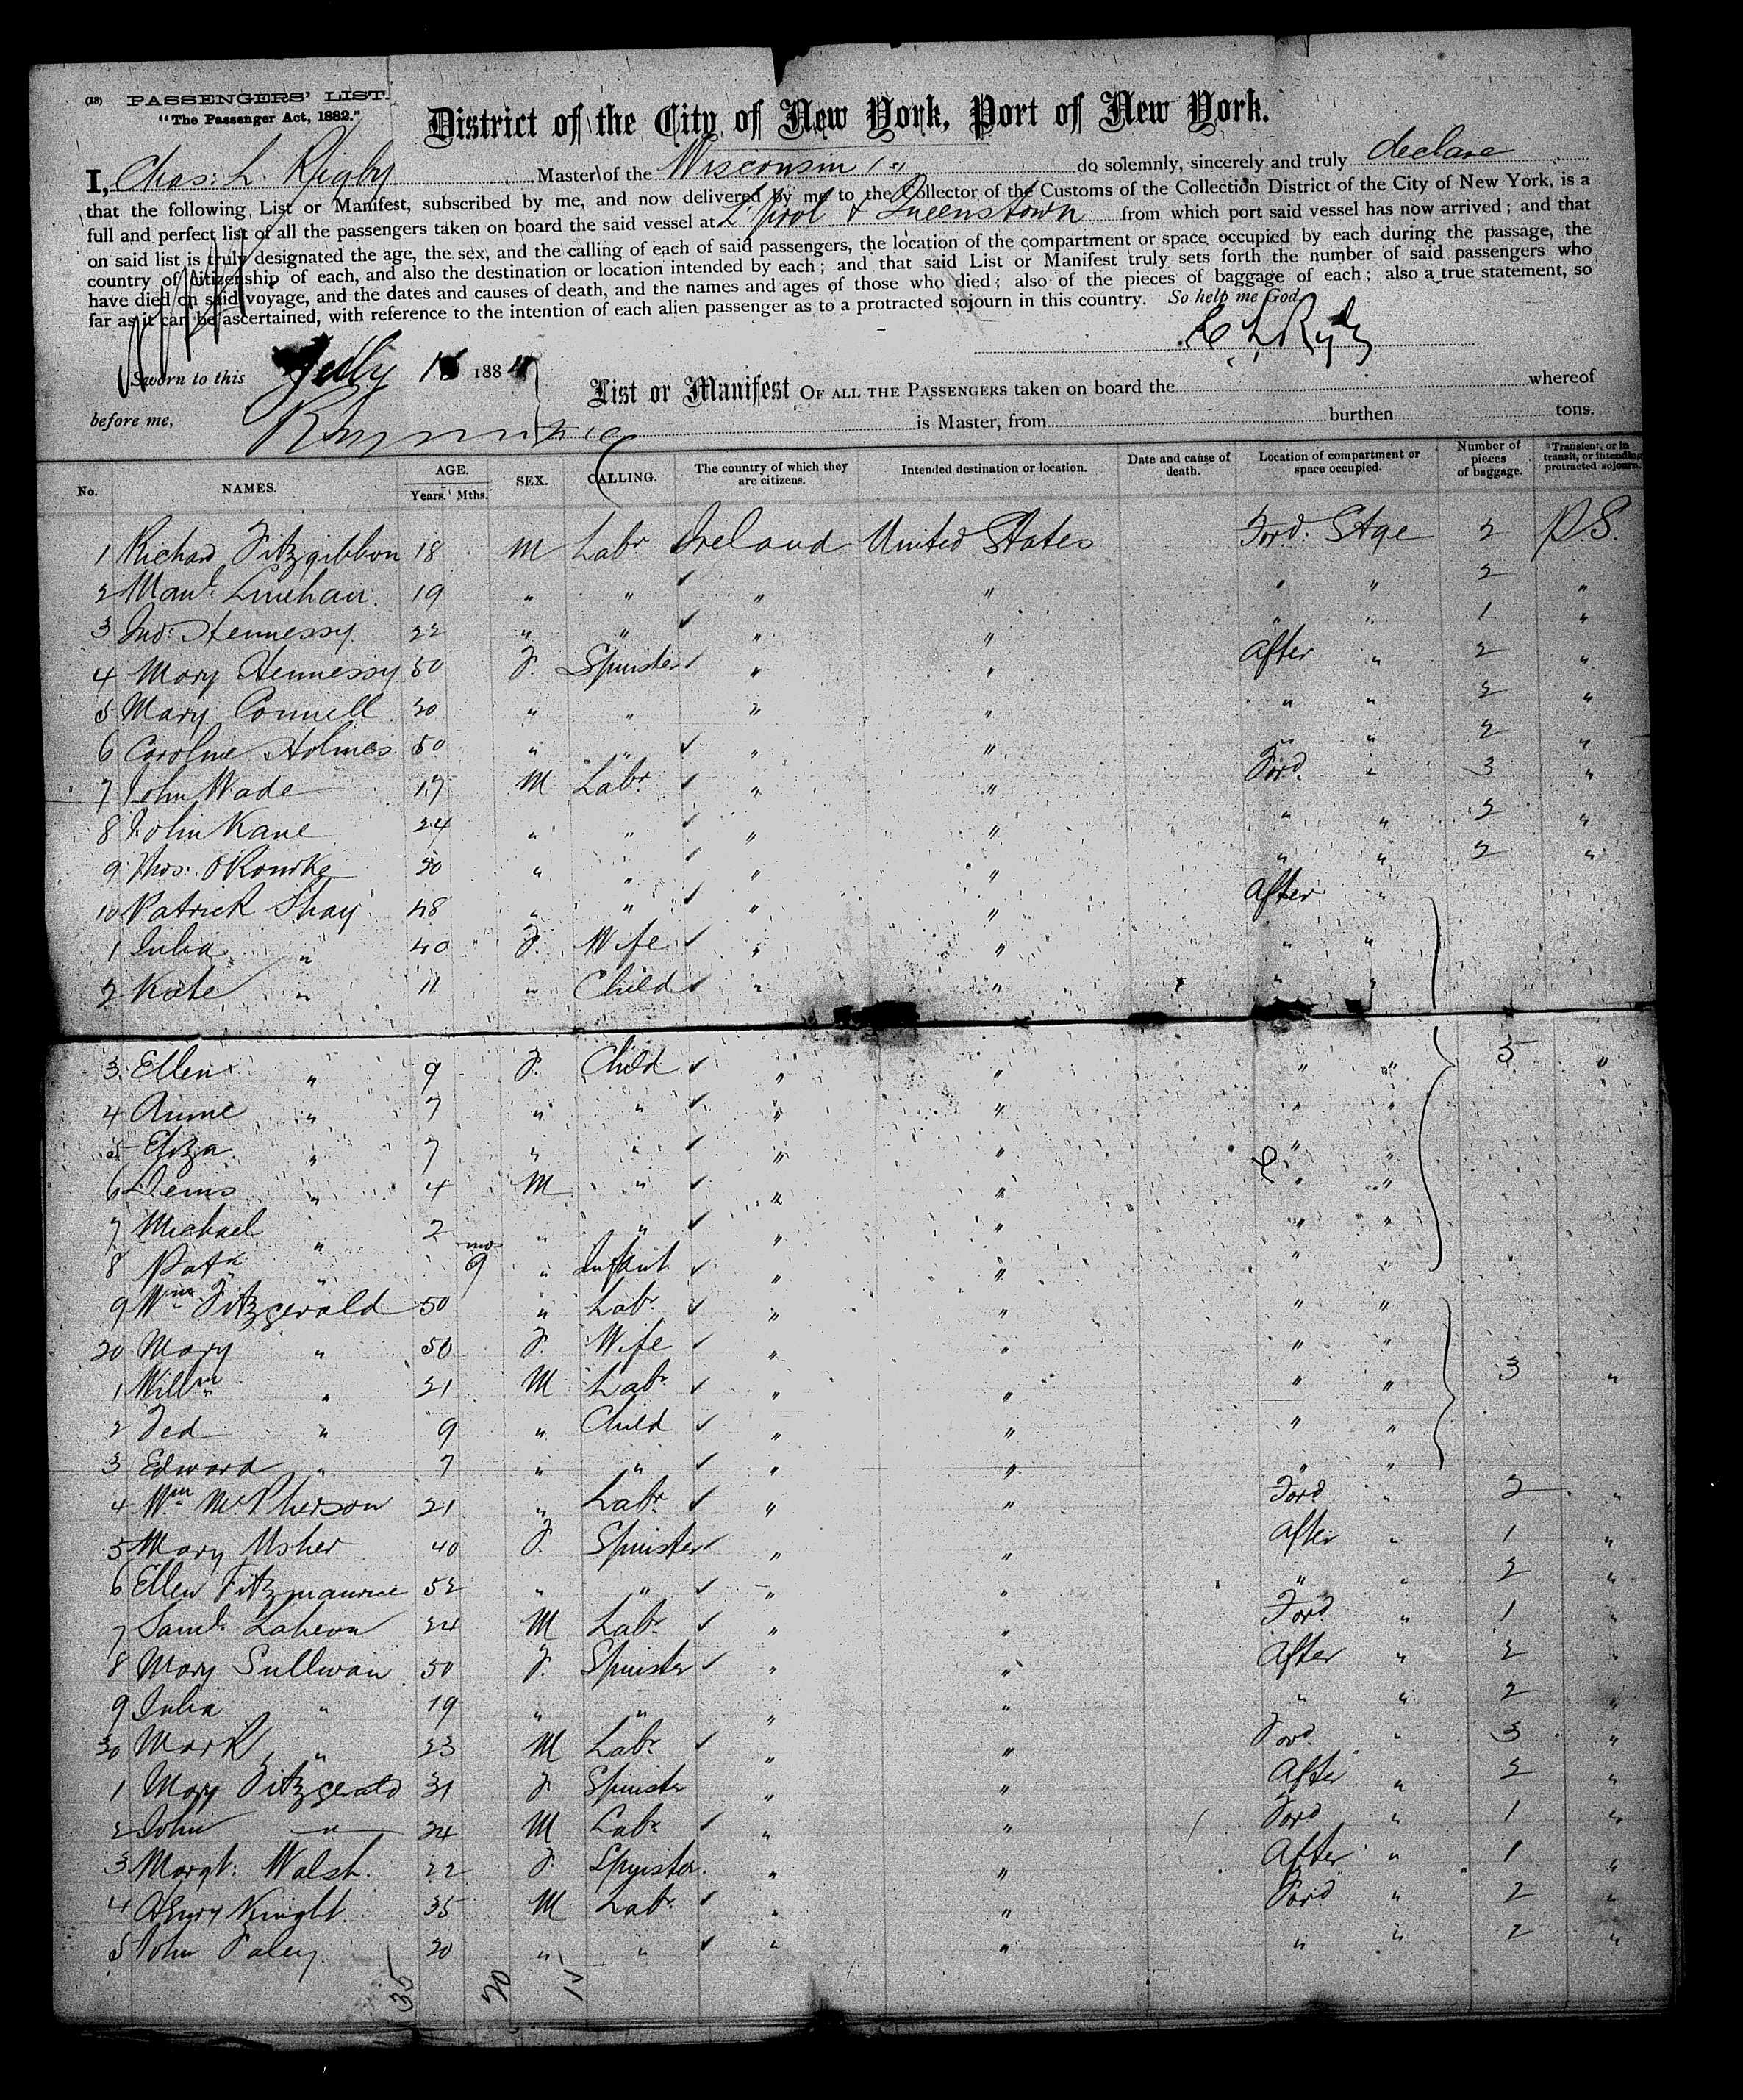 (18) PASSENGERS' LIST.
"The Passenger Act, 1882."
District of the City of New York, Port of New York.
I, Chas: L. Rigby Master of the Wisconsin do solemnly, sincerely and truly declare
that the following List or Manifest, subscribed by me, and now delivered by me to the Collector of the Customs of the Collection District of the City of New York, is a
full and perfect list of all the passengers taken on board the said vessel at L'pool & Queenstown from which port said vessel has now arrived; and that
on said list is truly designated the age, the sex, and the calling of each of said passengers, the location of the compartment or space occupied by each during the passage, the
country of citizenship of each, and also the destination or location intended by each; and that said List or Manifest truly sets forth the number of said passengers who
have died on said voyage, and the dates and causes of death, and the names and ages of those who died; also of the pieces of baggage of each; also a true statement, so
far as it can be ascertained, with reference to the intention of each alien passenger as to a protracted sojourn in this country. So help me God
Sworn to this July 188
List or Manifest OF ALL THE PASSENGERS taken on board the whereof
before me, is Master, from burthen tons.
No. NAMES. AGE. Years. Mths. SEX. CALLING. The country of which they are citizens. Intended destination or location. Date and cause of death. Location of compartment or space occupied. Number of pieces of baggage. Transient, or in transit, or intending protracted sojourn.
1 Richard Fitzgibbon 18 M Labr Ireland United States Ford: Stge 2 P.S.
2 Linehan 19 " " " " " " 2 "
3 Jno: Hennessy 22 " " " " " " 1 "
4 Mary Hennessy 50 F. Spinster " " After " 2 "
5 Mary Connell 20 " " " " " " 2 "
6 Caroline Holmes 50 " " " " " " 2 "
7 John Wade 17 M Labr " " Ford. " 3 "
8 John Kane 24 " " " " " " 2 "
9 Thos: O'Rourke 20 " " " " " " 2 "
10 Patrick Shay 48 " " " " After "
1 Julia " 40 F. Wife " " " "
2 Kate " 11 " Child " " " "
3 Ellen " 9 F. Child " " " " 5 "
4 Annie " 7 " " " " " "
5 Eliza " 7 " " " " " "
6 Denis " 4 M " " " " "
7 Michael " 2 " " " " " "
8 Patk " mos 9 " Infant " " "
9 Wm Fitzgerald 50 " Labr " " " "
20 Mary " 50 F. Wife " " " "
1 Willm " 21 M Labr " " " " 3 "
2 Ted " 9 " Child " " " "
3 Edward " 7 " " " " " "
4 Wm McPherson 21 " Labr " " Ford " 2 "
5 Mary Usher 40 F. Spinster " " After " 1 "
6 Ellen Fitzmaurice 52 " " " " " " 2 "
7 Saml. 24 M Labr " " Ford " 1 "
8 Mary Sullivan 50 F. Spinster " " After " 2 "
9 Julia " 19 " " " " " " 2 "
30 Mark " 23 M Labr " " Ford. " 3 "
1 Mary Fitzgerald 31 F Spinster " " After " 2 "
2 John " 24 M Labr " " Ford " 1 "
3 Margt: Walsh. 22 F. Spinster. " " After " 1 "
4 Henry Knight. 35 M Labr " " Ford " 2 "
5 John Foley 20 " " " " " " 2 "
35 20 15